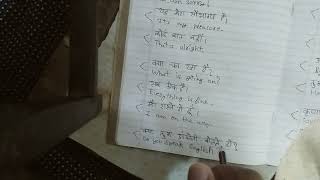 यह मेरा सौभाग्य है।
It's my pleasure.
कोई बात नहीं।
That's alright.
क्या चल रहा है?
What is going on?
सब ठीक है।
Everything is fine.
मैं रास्ते में हूँ।
I am on the way.
क्या तुम अंग्रेजी बोलते हो?
Do you speak English